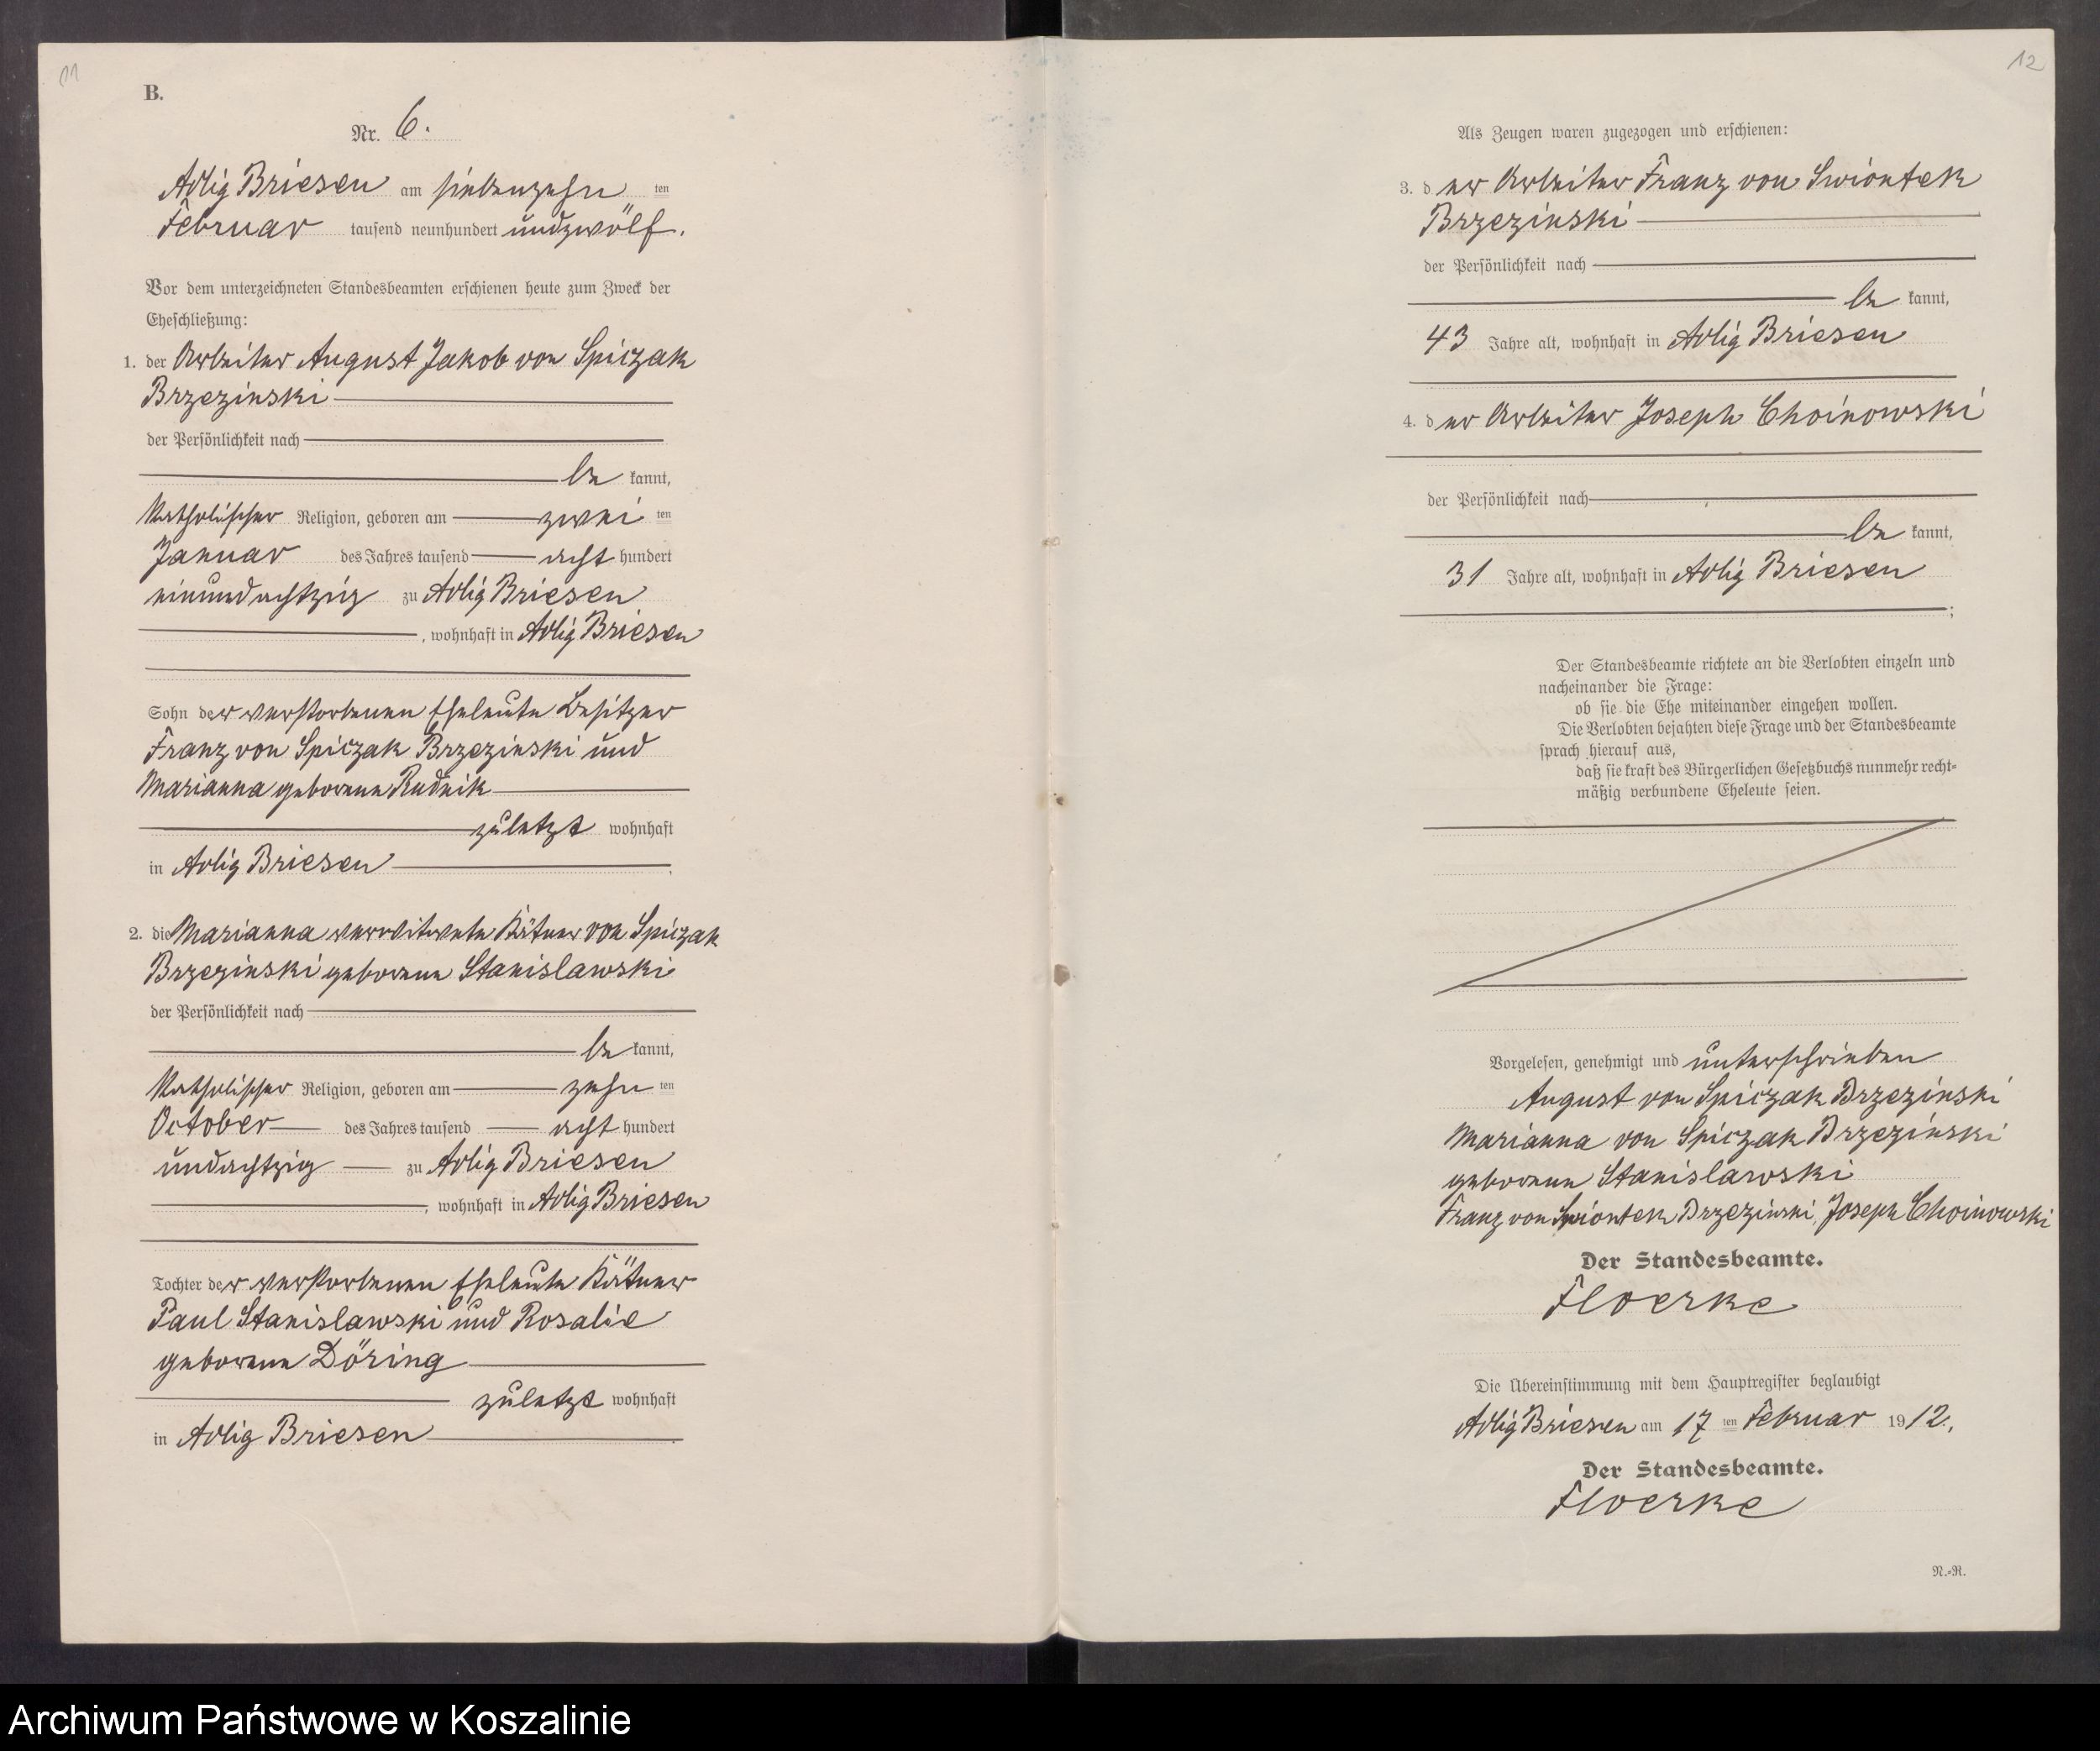 11
B.
Nr. 6.
Adlig Briesen am siebenzehn ten
Februar tausend neunhundert undzwölf.
Vor dem unterzeichneten Standesbeamten erschienen heute zum Zweck der
Eheschließung:
1. der Arbeiter August Jakob von Spiczak
Brzezinski
der Persönlichkeit nach
be kannt,
katholischer Religion, geboren am zwei ten
Januar des Jahres tausend acht hundert
einundachtzig zu Adlig Briesen
, wohnhaft in Adlig Briesen
Sohn der verstorbenen Eheleute Besitzer
Franz von Spiczak Brzezinski und
Marianna geborene Rudnik
zuletzt wohnhaft
in Adlig Briesen
2. die Marianna verwitwete Kätner von Spiczak
Brzezinski geborene Stanislawski
der Persönlichkeit nach
be kannt,
katholischer Religion, geboren am zehn ten
October des Jahres tausend acht hundert
undachtzig zu Adlig Briesen
, wohnhaft in Adlig Briesen
Tochter der verstorbenen Eheleute Kätner
Paul Stanislawski und Rosalie
geborene Döring
zuletzt wohnhaft
in Adlig Briesen
12
Als Zeugen waren zugezogen und erschienen:
3. d er Arbeiter Franz von Swiontek
Brzezinski
der Persönlichkeit nach
be kannt,
43 Jahre alt, wohnhaft in Adlig Briesen
4. d er Arbeiter Joseph Choinowski
der Persönlichkeit nach
be kannt,
31 Jahre alt, wohnhaft in Adlig Briesen
;
Der Standesbeamte richtete an die Verlobten einzeln und
nacheinander die Frage:
ob sie die Ehe miteinander eingehen wollen.
Die Verlobten bejahten diese Frage und der Standesbeamte
sprach hierauf aus,
daß sie kraft des Bürgerlichen Gesetzbuchs nunmehr recht=
mäßig verbundene Eheleute seien.
Vorgelesen, genehmigt und unterschrieben
August von Spiczak Brzezinski
Marianna von Spiczak Brzezinski
geborene Stanislawski
Franz von Swiontek Brzezinski, Joseph Choinowski
Der Standesbeamte.
Floerke
Die Übereinstimmung mit dem Hauptregister beglaubigt
Adlig Briesen am 17 ten Februar 19 12.,
Der Standesbeamte.
Floerke
N.=R.
Archiwum Państwowe w Koszalinie